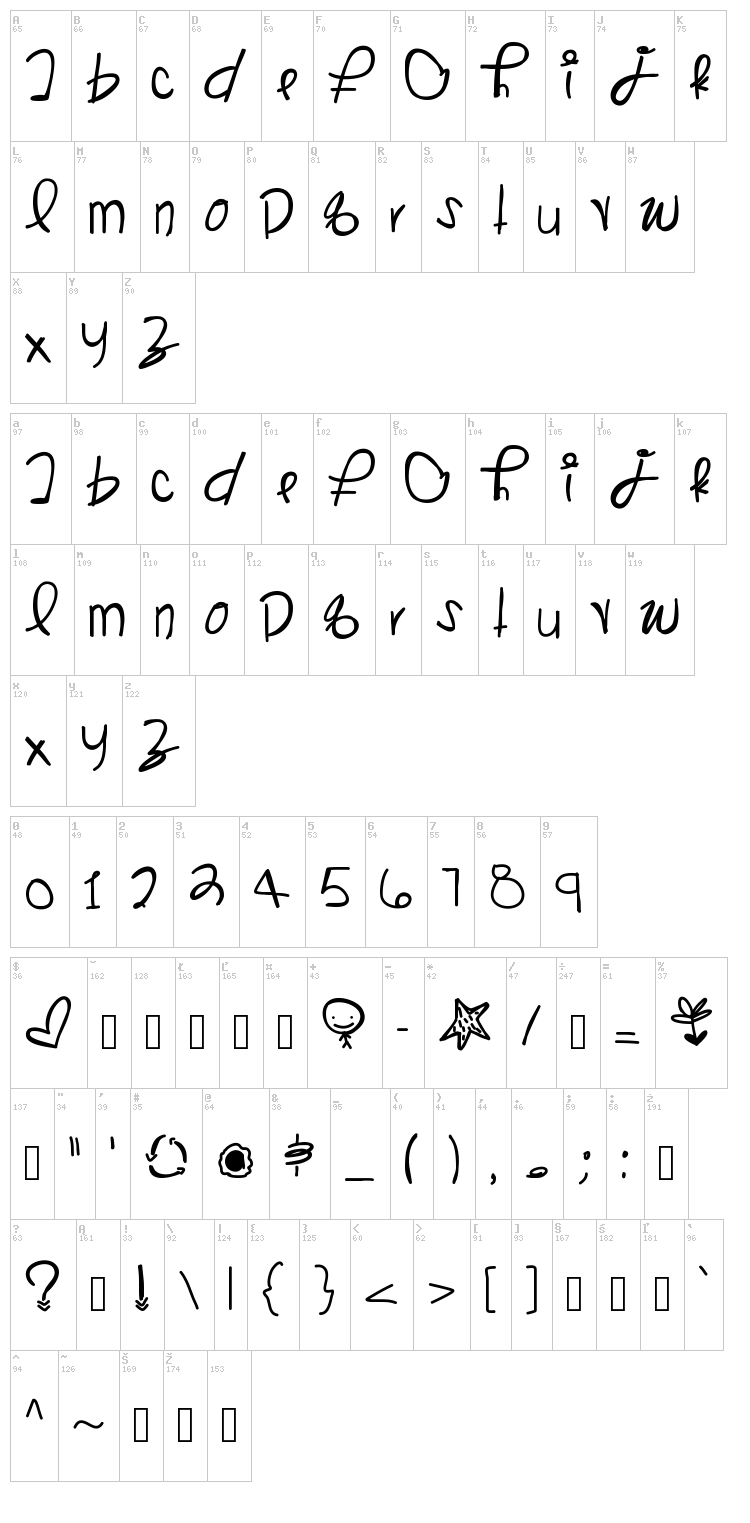 A B C D E F G H I J K
65 66 67 68 69 70 71 72 73 74 75
a b c d e f g h i j k
L M N O P Q R S T U V W
76 77 78 79 80 81 82 83 84 85 86 87
l m n o p q r s t u v w
X Y Z
88 89 90
x y z
a b c d e f g h i j k
97 98 99 100 101 102 103 104 105 106 107
a b c d e f g h i j k
l m n o p q r s t u v w
108 109 110 111 112 113 114 115 116 117 118 119
l m n o p q r s t u v w
x y z
120 121 122
x y z
0 1 2 3 4 5 6 7 8 9
48 49 50 51 52 53 54 55 56 57
0 1 2 3 4 5 6 7 8 9
$ ˘ Ł Ľ ¤ + - * / ÷ = %
36 162 128 163 165 164 43 45 42 47 247 61 37
- / =
" ' # @ & _ ( ) , . ; :
137 34 39 35 64 38 95 40 41 44 46 59 58 191
" ' & _ ( ) , . ; :
? Ą ! \ | { } < > [ ] § ś ľ `
63 161 33 92 124 123 125 60 62 91 93 167 182 181 96
? ! \ | { } < > [ ] `
^ ~ Š Ž
94 126 169 174 153
^ ~